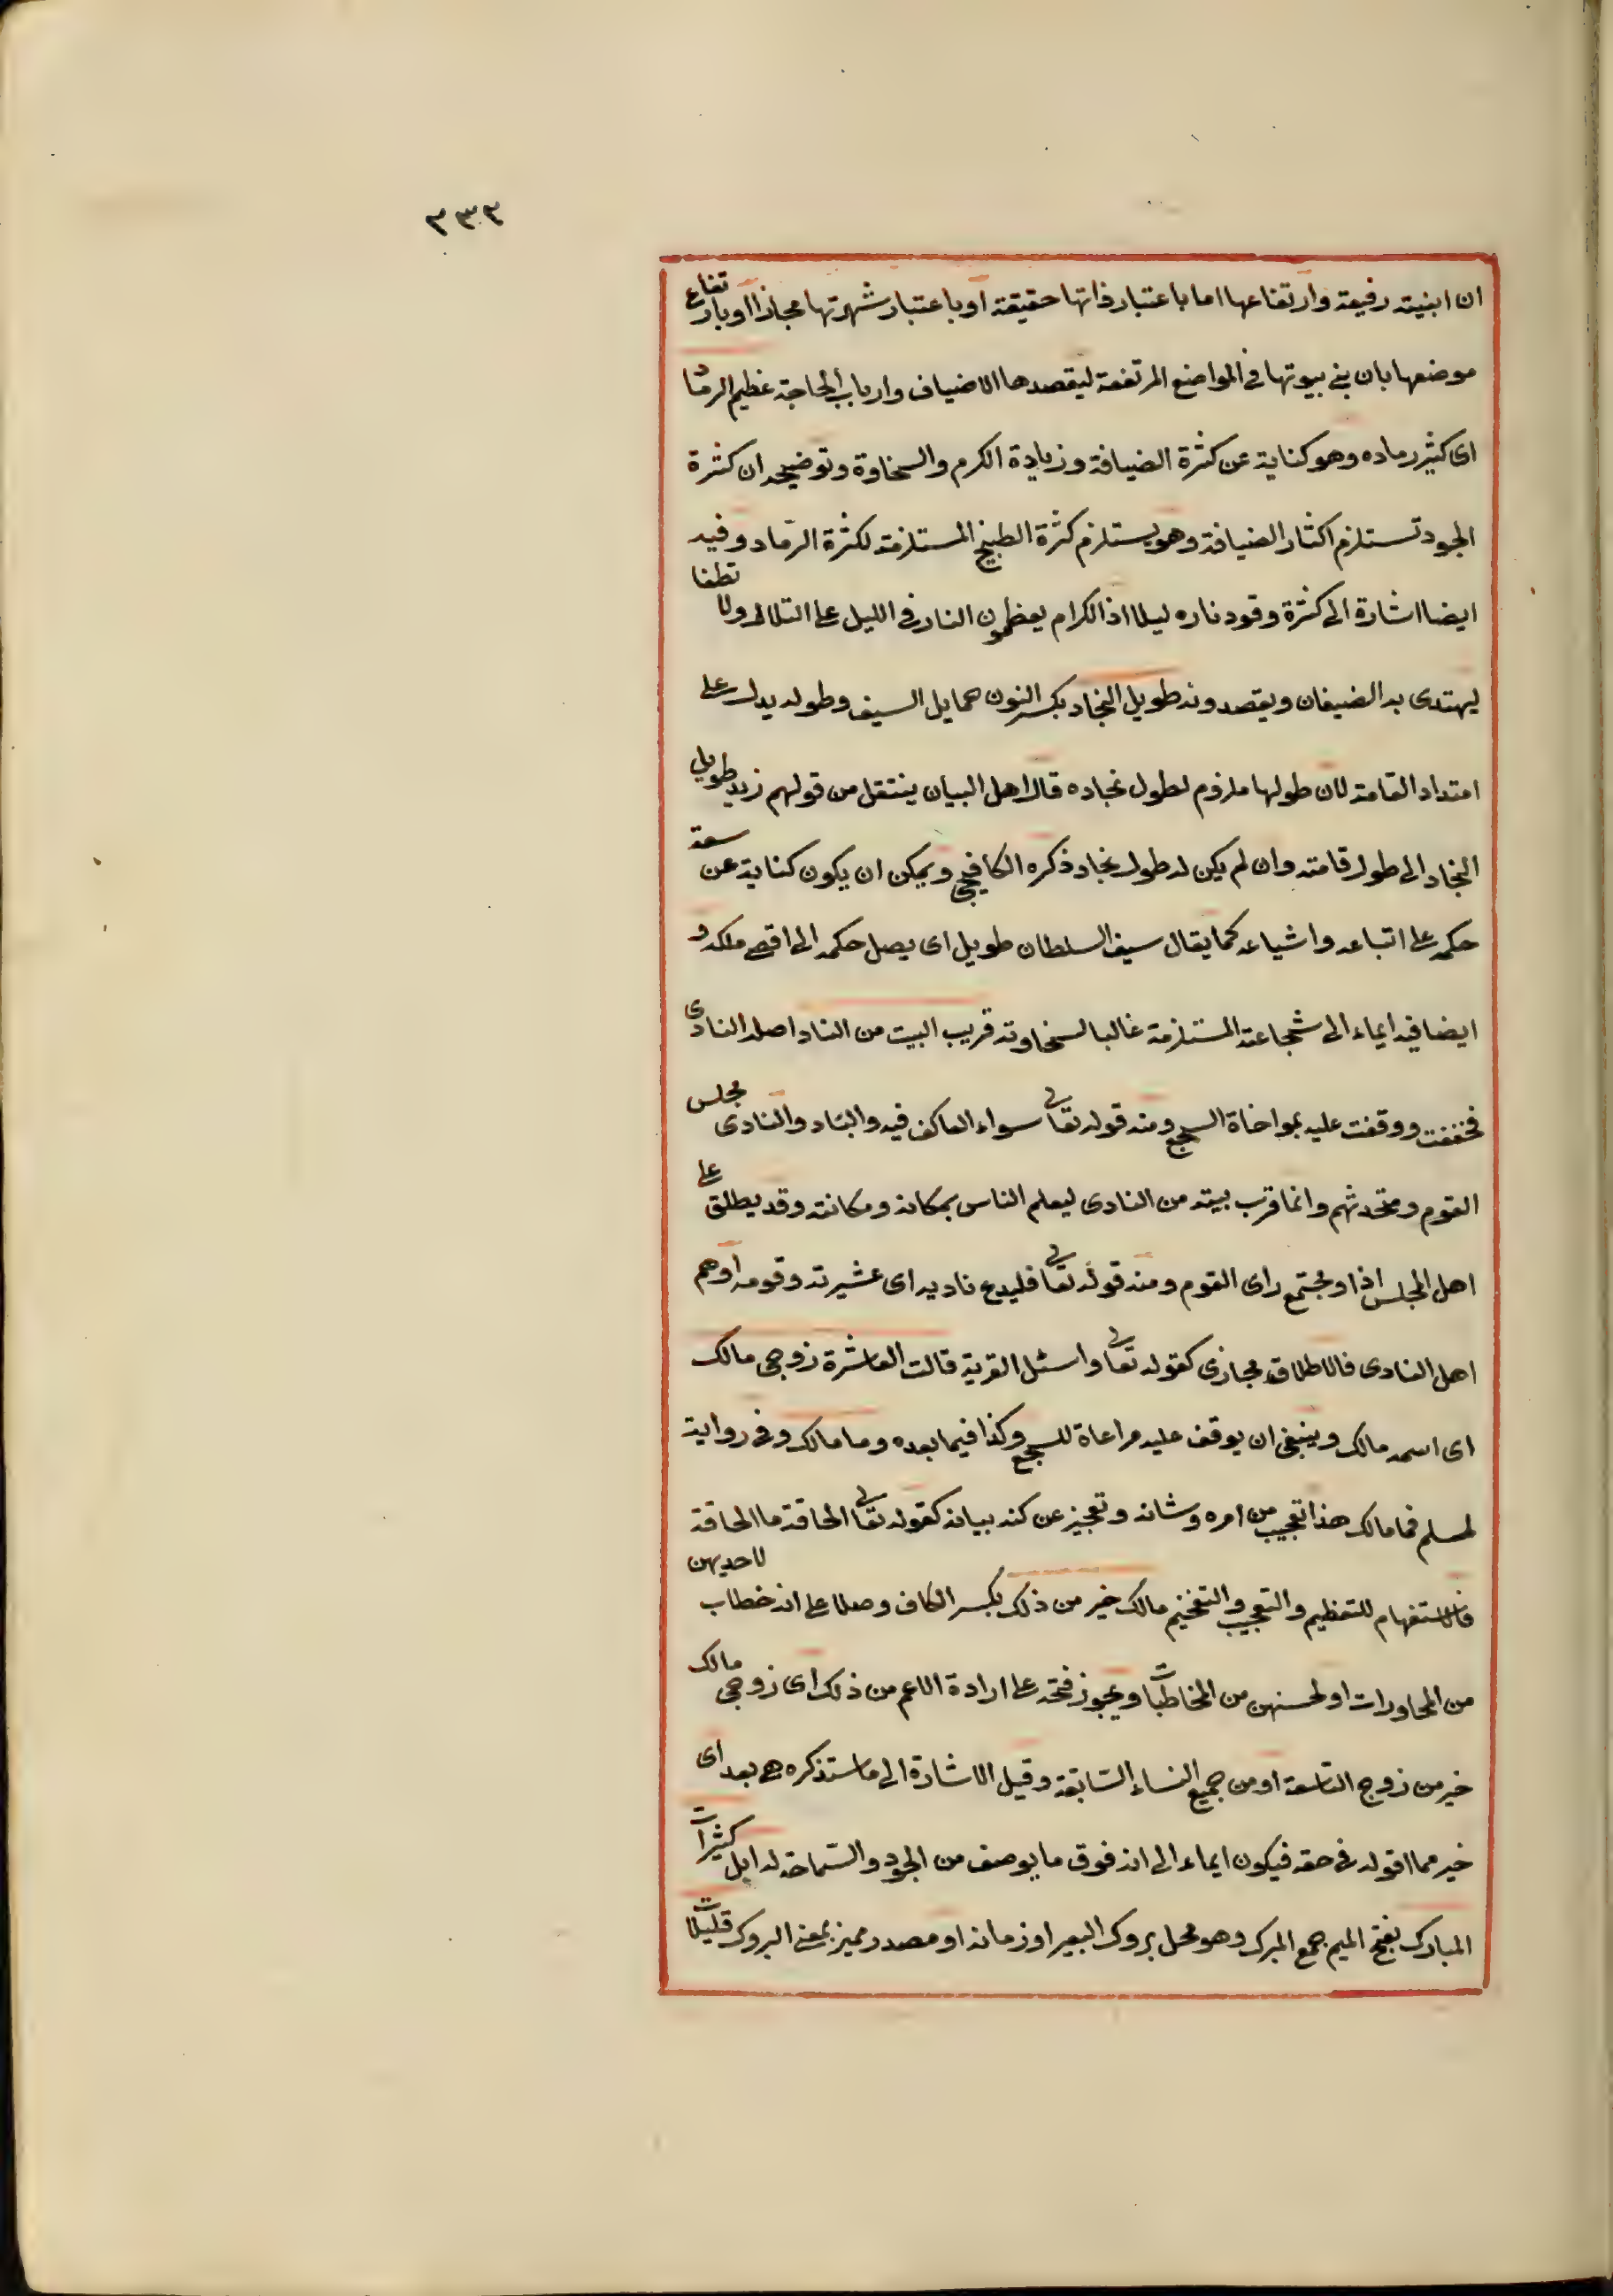 ٣٣٣
ان ابنيته رفيعة وارتفاعها اما باعتبار ذاتها حقيقة او باعتبار شهرتها مجازا او بارتفاع
موضعها بان بنى بيوتها في المواضع المرتفعة ليقصدها الاضياف وارباب الحاجة عظيم الرماد
اى كثير رماده وهو كناية عن كثرة الضيافة وزيادة الكرم والسخاوة وتوضيحه ان كثرة
الجود تستلزم اكثار الضيافة وهو يستلزم كثرة الطبخ المستلزمة لكثرة الرّماد وفيه
ايضا اشارة الى كثرة وقود ناره ليلا اذ الكرام يعظمون النار في الليل على التلال ولا تطفا
ليهتدى به الضيفان ويقصدونه طويل النجاد بكسر النون حمايل السيف وطوله يدل على
امتداد القامة لان طولها ملزوم لطول نجاده قال اهل البيان ينتقل من قولهم زيد طويل
النجاد الى طول قامته وان لم يكن له طول نجاد ذكره الكافيجى ويمكن ان يكون كناية عن سعة
حكمه على اتباعه واشياعه كما يقال سيف السلطان طويل اى يصل حكمه الى اقصى ملكه و
ايضا فيه ايماء الى شجاعته المستلزمة غالبا لسخاوته قريب البيت من الناد اصله النادى
فخففت ووقفت عليه بمواخاة السجع ومنه قوله تعالى سواء العاكف فيه والباد والنادى مجلس
القوم ومتحدثهم وانما قرب بيته من النادى ليعلم الناس بمكانه ومكانته وقد يطلق على
اهل المجلس اذا و مجتمع راى القوم ومنه قوله تعالى فليدع ناديه اى عشيرته وقومه او هم
اهل النادى فالاطلاق مجازى كقوله تعالى واسئل القرية قالت العاشرة زوجى مالك
اى اسمه مالك وينبغى ان يوقف عليه مراعاة للسجع وكذا فيما بعده وما مالك وفى رواية
لمسلم فما مالك هذا تعجيب من امره وشانه وتعجيز عن كنه بيانه كقوله تعالى الحاقة ما الحاقة
فالاستفهام للتعظيم والتعجيب والتفخيم مالك خير من ذلك بكسر الكاف وصلا على انه خطاب لاحديهن
من المحاورات او لحسنهن من المخاطبات ويجوز فتحه على ارادة الاعم من ذلك اى زوجى مالك
خير من زوج التاسعة او من جميع النساء السّابقة وقيل الاشارة الى ما ستذكره هى بعد اى
خير مما اقوله فى حقه فيكون ايماء الى انه فوق ما يوصف من الجود والسّماحة له ابل كثيرات
المبارك بفتح الميم جمع المبرك وهو محل بروك البعير او زمانه او مصدر مميز بمعنى البروك قليلات